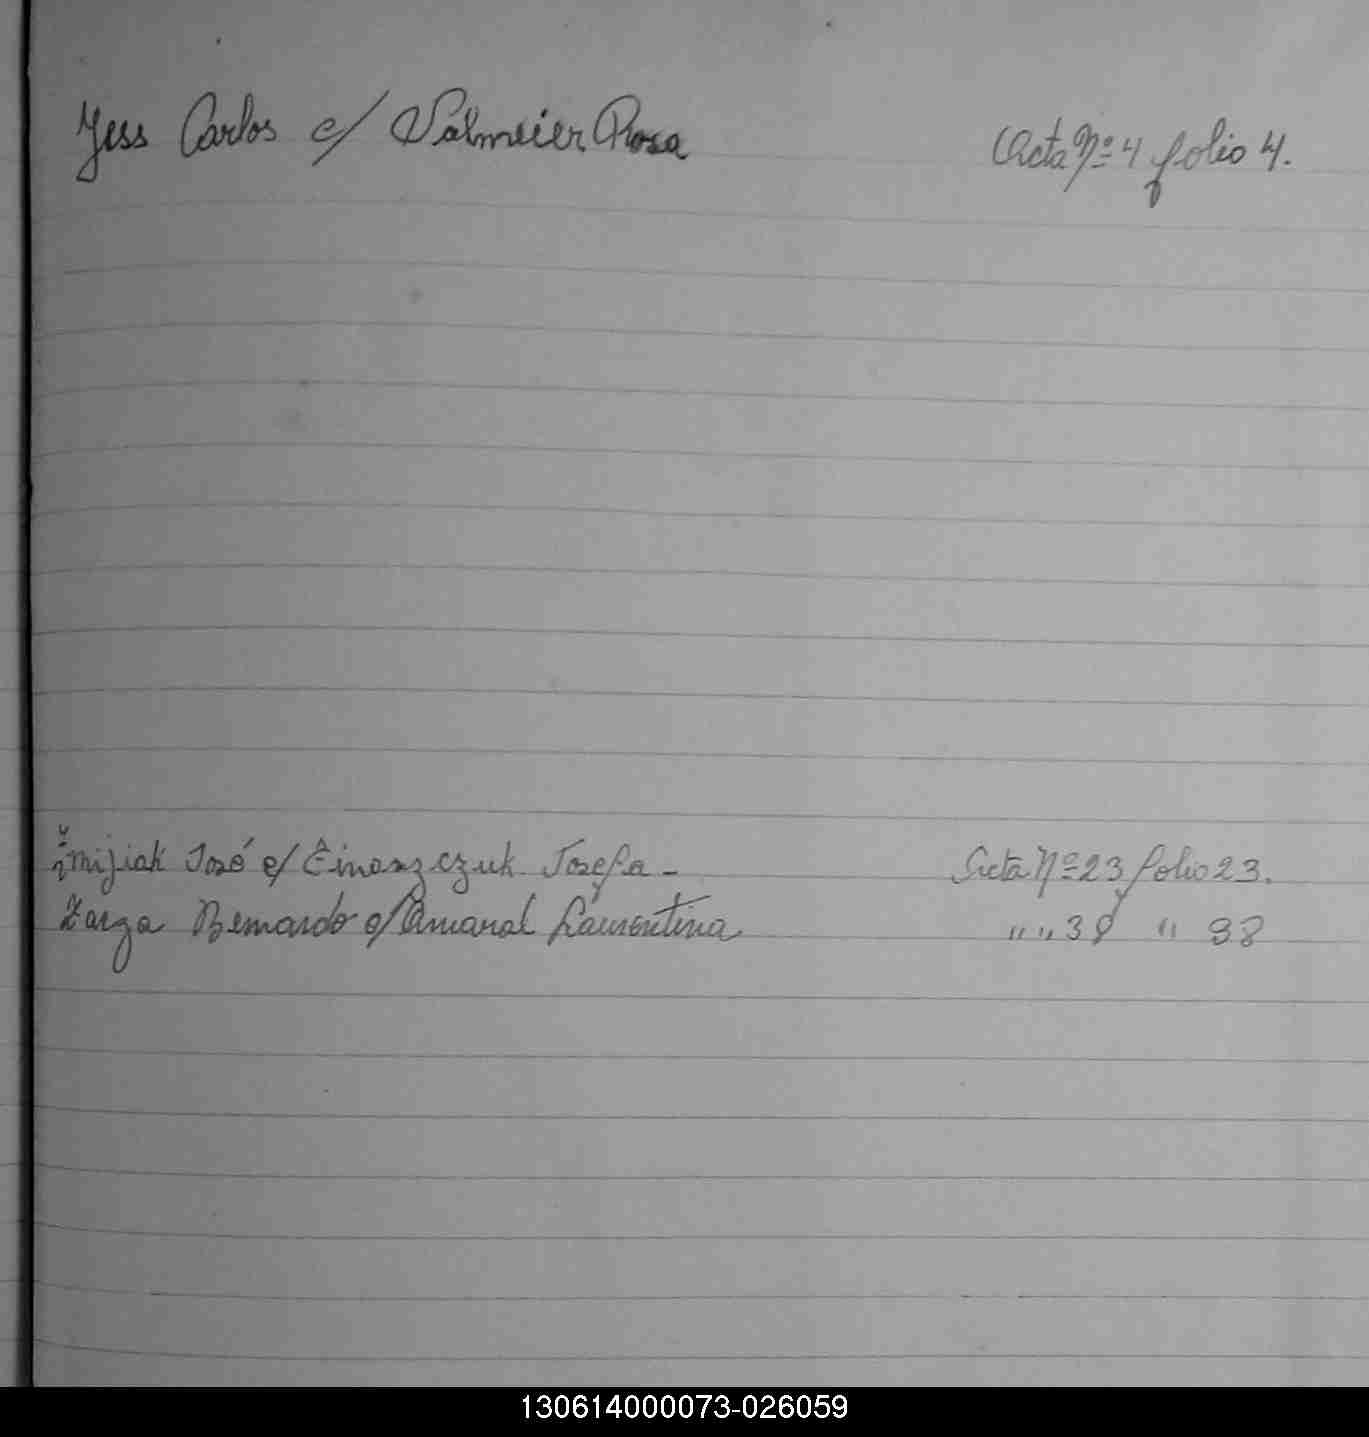 Yess Carlos c/ Valmeier Rosa Acta Nº 4 folio 4.
José c/ Josefa - Acta Nº 23 folio 23.
Zarza Bernardo c/ Amaral Laurentina " " 38 " 38
130614000073-026059